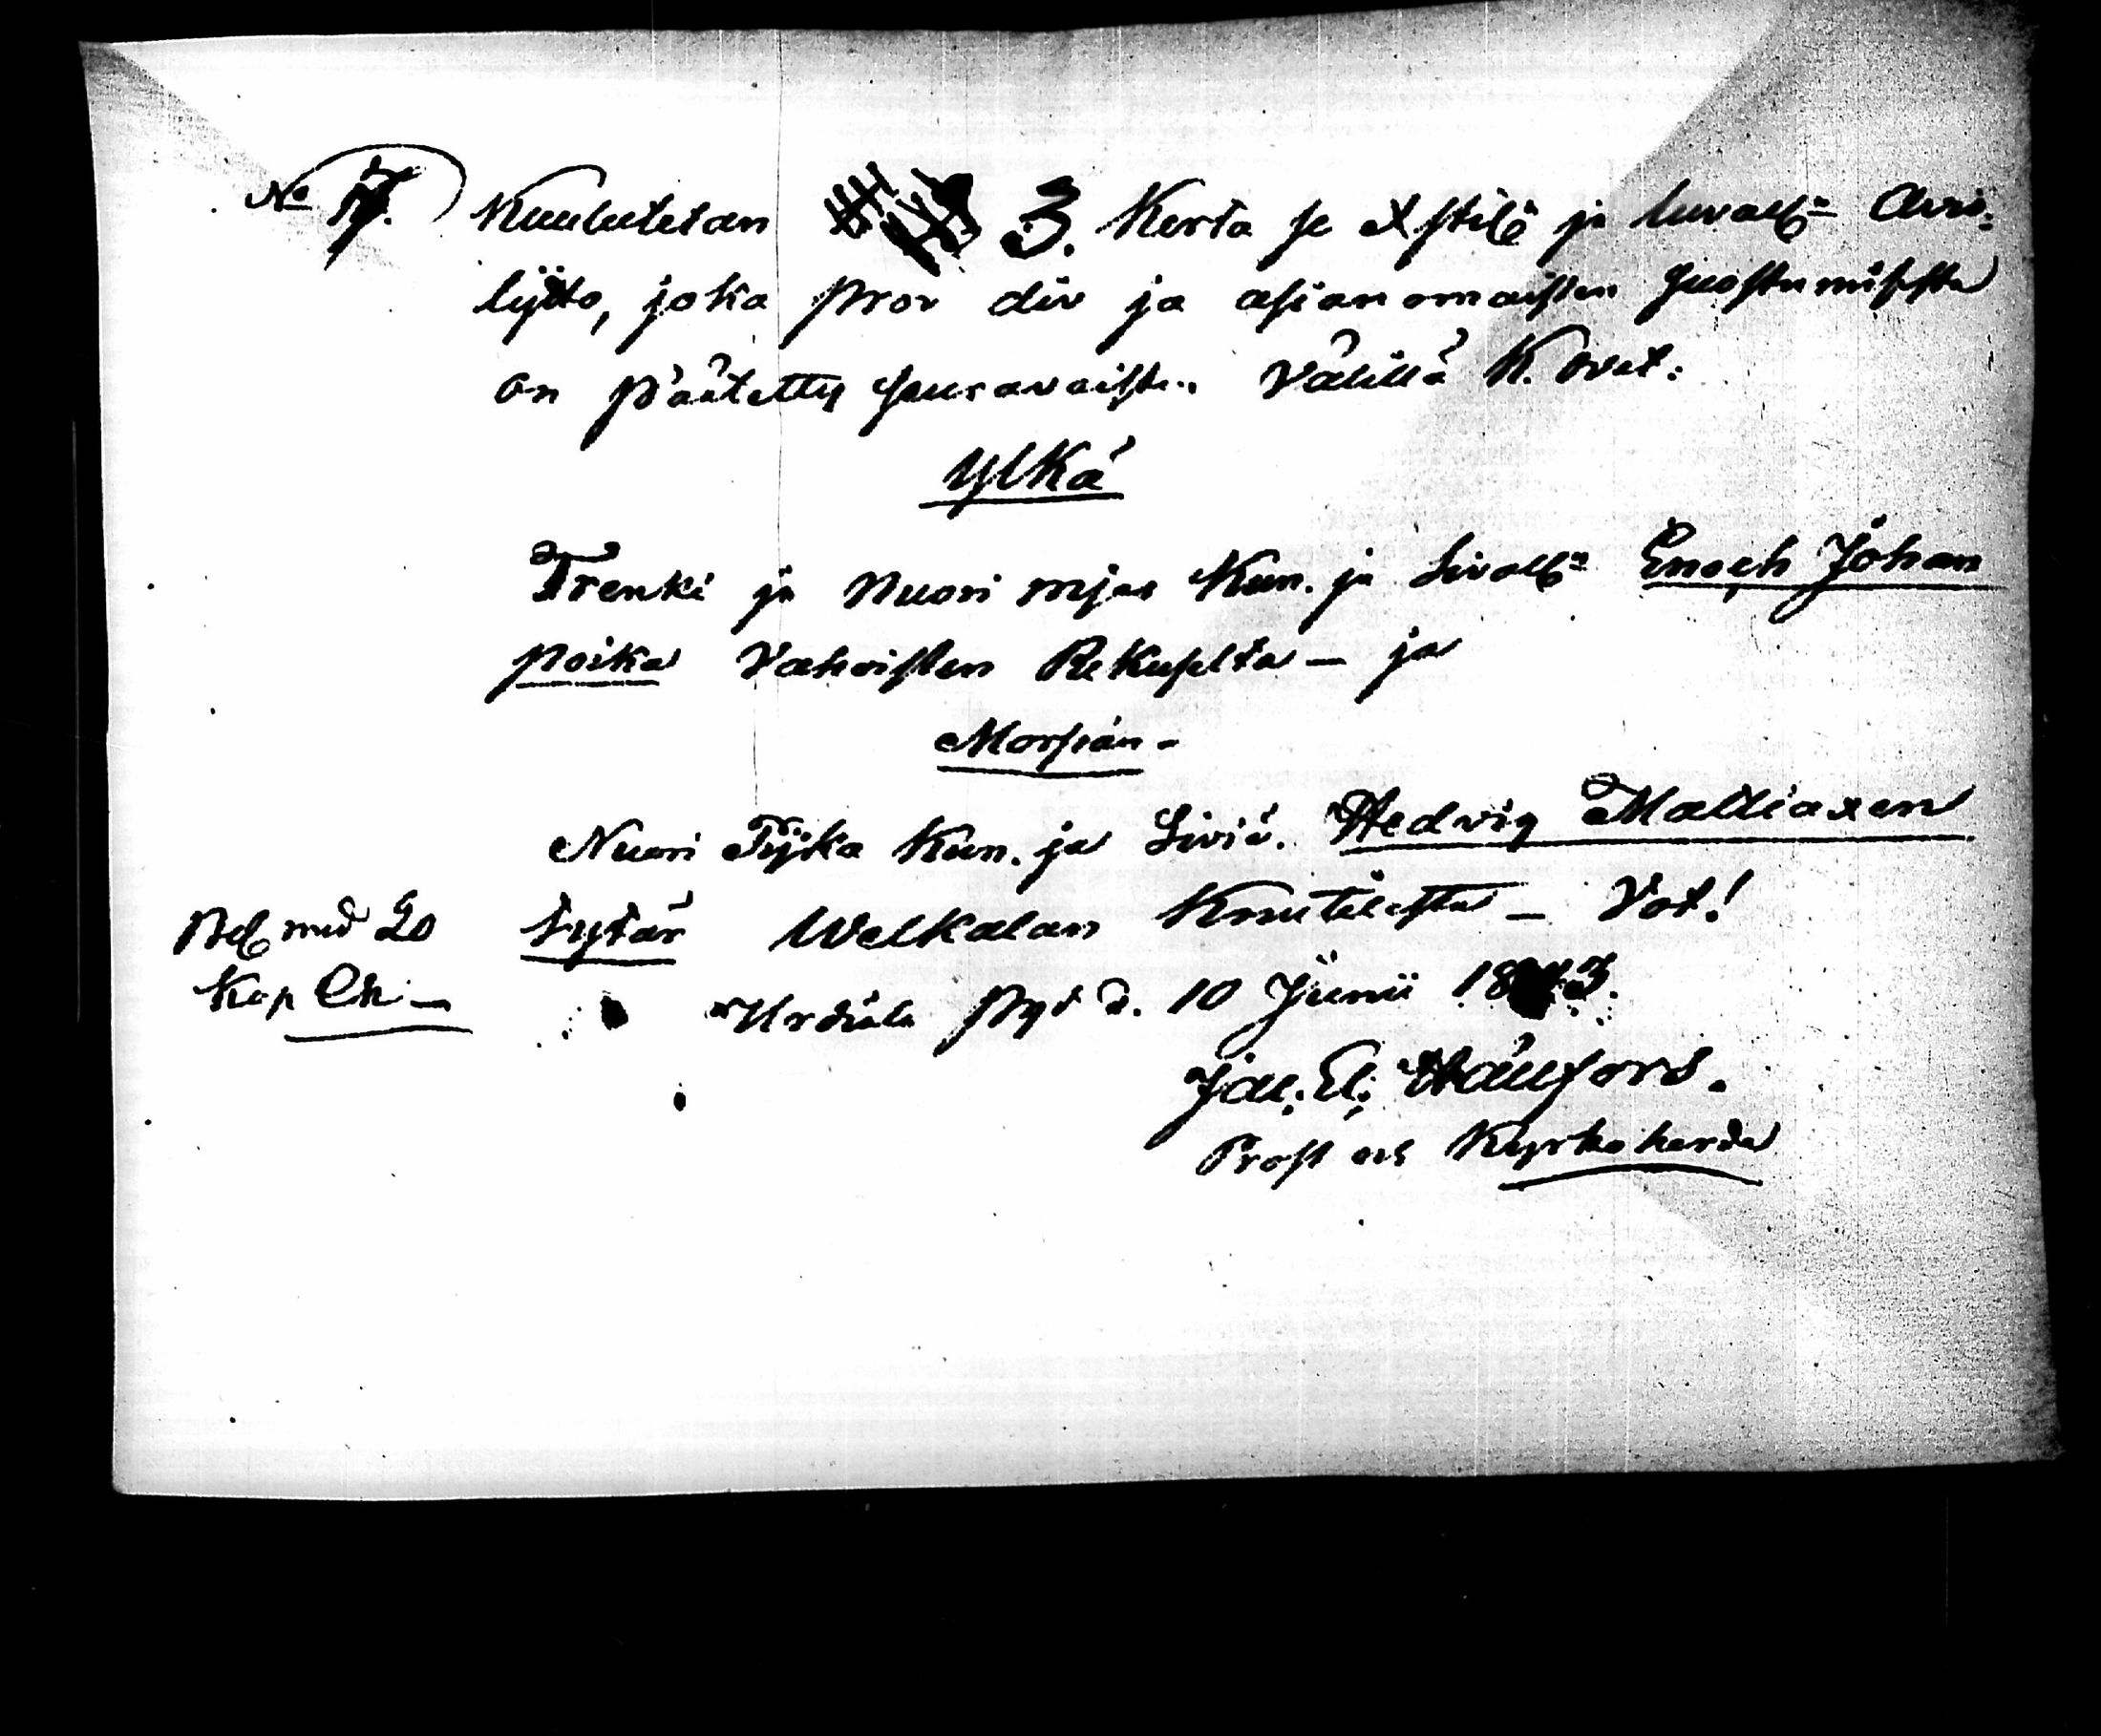 No 7. Kuulutetan 3. Kerta se Xstilë ja luvallë Avio-
lijtto, joka prov div ja asianomaisten suostumisesta
on päätetty seuravaisten välillä K. ovat:
Ylkä
Trenki ja Nuori mjes Kun. ja Sivallë Enoch Johan
poika Vahoisten Rekuselta - ja
Morsian -
Nuori Pijka Kun. ja Siviä. Hedvig Mattiaxen
tytär Welkalan Knutilasta - Vot!
Bel med 20
Kop Ch -
Urdiala Pgd d. 10 Junii 1843.
Jac. El. Hällfors.
Prost och Kyrkoherde